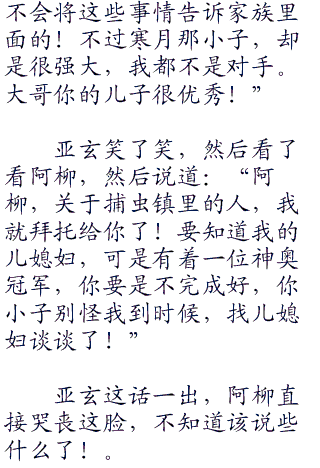 不会将这些事情告诉家族里
面的！不过寒月那小子，却
是很强大，我都不是对手。
大哥你的儿子很优秀！”
亚玄笑了笑，然后看了
看阿柳，然后说道：“阿
柳，关于捕虫镇里的人，我
就拜托给你了！要知道我的
儿媳妇，可是有着一位神奥
冠军，你要是不完成好，你
小子别怪我到时候，找儿媳
妇谈谈了！”
亚玄这话一出，阿柳直
接哭丧这脸，不知道该说些
什么了！。